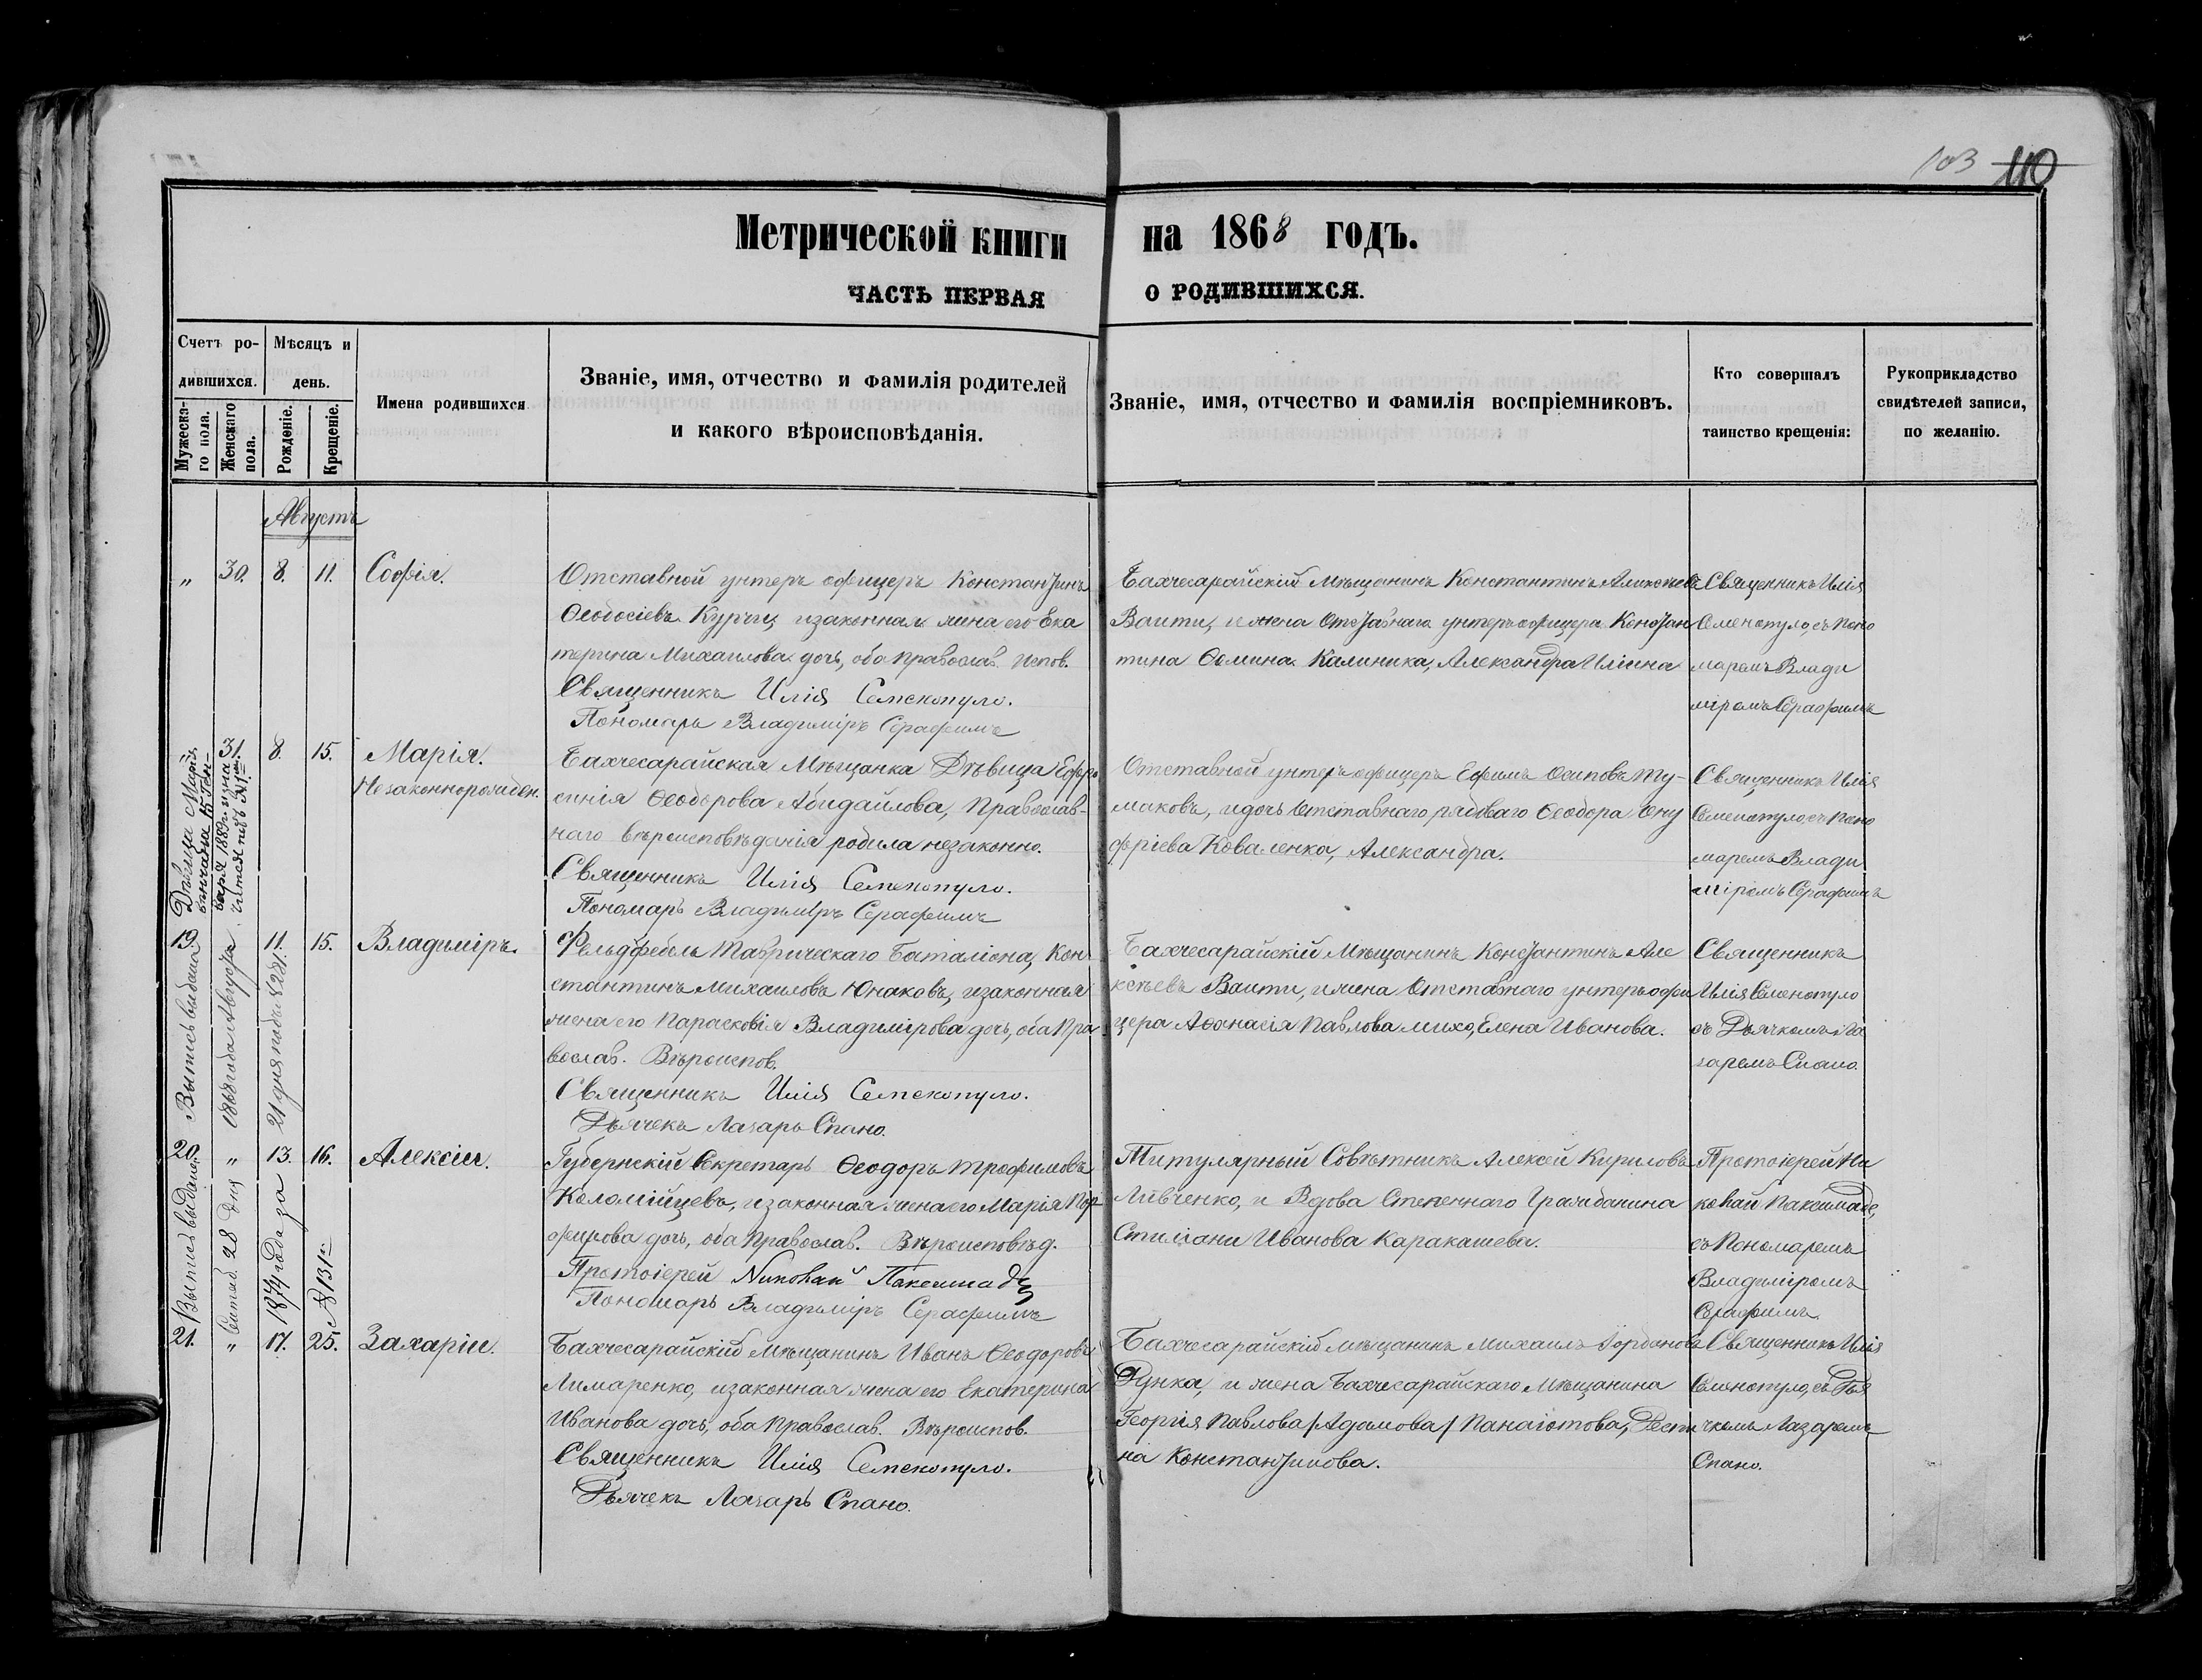 103 110
Метрической книги на 1868 годъ.
ЧАСТЬ ПЕРВАЯ О РОДИВШИХСЯ.
Счетъ родившихся.
Мужескаго пола.
Женскаго пола.
Мѣсяцъ и день.
Рожденіе.
Крещеніе.
Имена родившихся
Званіе, имя, отчество и фамилія родителей
и какого вѣроисповѣданія.
Званіе, имя, отчество и фамилія воспріемниковъ.
Кто совершалъ
таинство крещенія:
Рукоприкладство
свидѣтелей записи,
по желанію.
Августъ
„ 30. 8. 11. Софія.
Отставной унтеръ офицеръ Константинъ
Ѳеодосіевъ Курчи, и законная жена его Ека
терина Михаилова дочь, оба православ. испов.
Священникъ Илія Семенопуло.
Пономарь Владиміръ Серафимъ
Бахчесарайскій Мѣщанинъ Константинъ Алексѣевъ
Ваити, и жена Отставнаго унтеръ офицера Констан
тина Ѳомина Калиника, Александра Иліина
Священникъ Илія
Семенопуло, съ Поно
маремъ Влади
міромъ Серафимъ
31. 8. 15. Марія.
Незаконнорожден.
Дѣвица Марія
вѣнчана 15 Ген-
варя 1889 г.
Бахчесарайская Мѣщанка Дѣвица Ефро
синія Ѳеодорова Абидайлова, Православ-
наго вѣроисповѣданія родила незаконно.
Священникъ Илія Семенопуло.
Пономарь Владиміръ Серафимъ
Отставной унтеръ офицеръ Ефимъ Осиповъ Ту-
маковъ, и дочь Отставнаго рядоваго Ѳеодора Ону
фріева Коваленка, Александра.
Священникъ Илія
Семенопуло, съ Поно
маремъ Влади
міромъ Серафимъ
19. 11. 15. Владиміръ.
Выпись выдана
1868 года Августа
21 дня подъ № 281.
Фельдфебель Таврическаго Баталіона, Кон
стантинъ Михаиловъ Юнаковъ, и законная
жена его Парасковія Владимірова дочь, оба Пра
вослав. Вѣроиспов.
Священникъ Илія Семенопуло.
Дьячекъ Лазарь Спано.
Бахчесарайскій Мѣщанинъ Константинъ Але
ксѣевъ Ваити, и жена Отставнаго унтеръ офи
цера Аѳанасія Павлова Михо, Елена Иванова.
Священникъ
Илія Семенопуло
съ Дьячкомъ Ла
заремъ Спано.
20. „ 13. 16. Алексій.
Выпись выдана
Сентяб. 28 дня
1874 года за
№ 131
Губернскій Секретарь Ѳеодоръ Трофимовъ
Коломійцевъ, и законная жена его Марія Пор
фирова дочь, оба Православ. Вѣроисповѣд.
Протоіерей Николай Паксимаде
Пономарь Владиміръ Серафимъ
Титулярный Совѣтникъ Алексѣй Кириловъ
Ливченко, и Вдова Степеннаго Гражданина
Стиліани Иванова Каракашева.
Протоіерей Ни
колай Паксимаде,
съ Пономаремъ
Владиміромъ
Серафимъ
21. „ 17. 25. Захарій.
Бахчесарайскій Мѣщанинъ Иванъ Ѳеодоровъ
Лимаренко, и законная жена его Екатерина
Иванова дочь, оба Православ. Вѣроиспов.
Священникъ Илія Семенопуло.
Дьячекъ Лазарь Спано.
Бахчесарайскій Мѣщанинъ Михаилъ Іордановъ
Дунка, и жена Бахчесарайскаго Мѣщанина
Георгія Павлова /Адамова/ Панаіотова, Деспи
на Константинова.
Священникъ Илія
Семенопуло, съ Дья
чкомъ Лазаремъ
Спано.